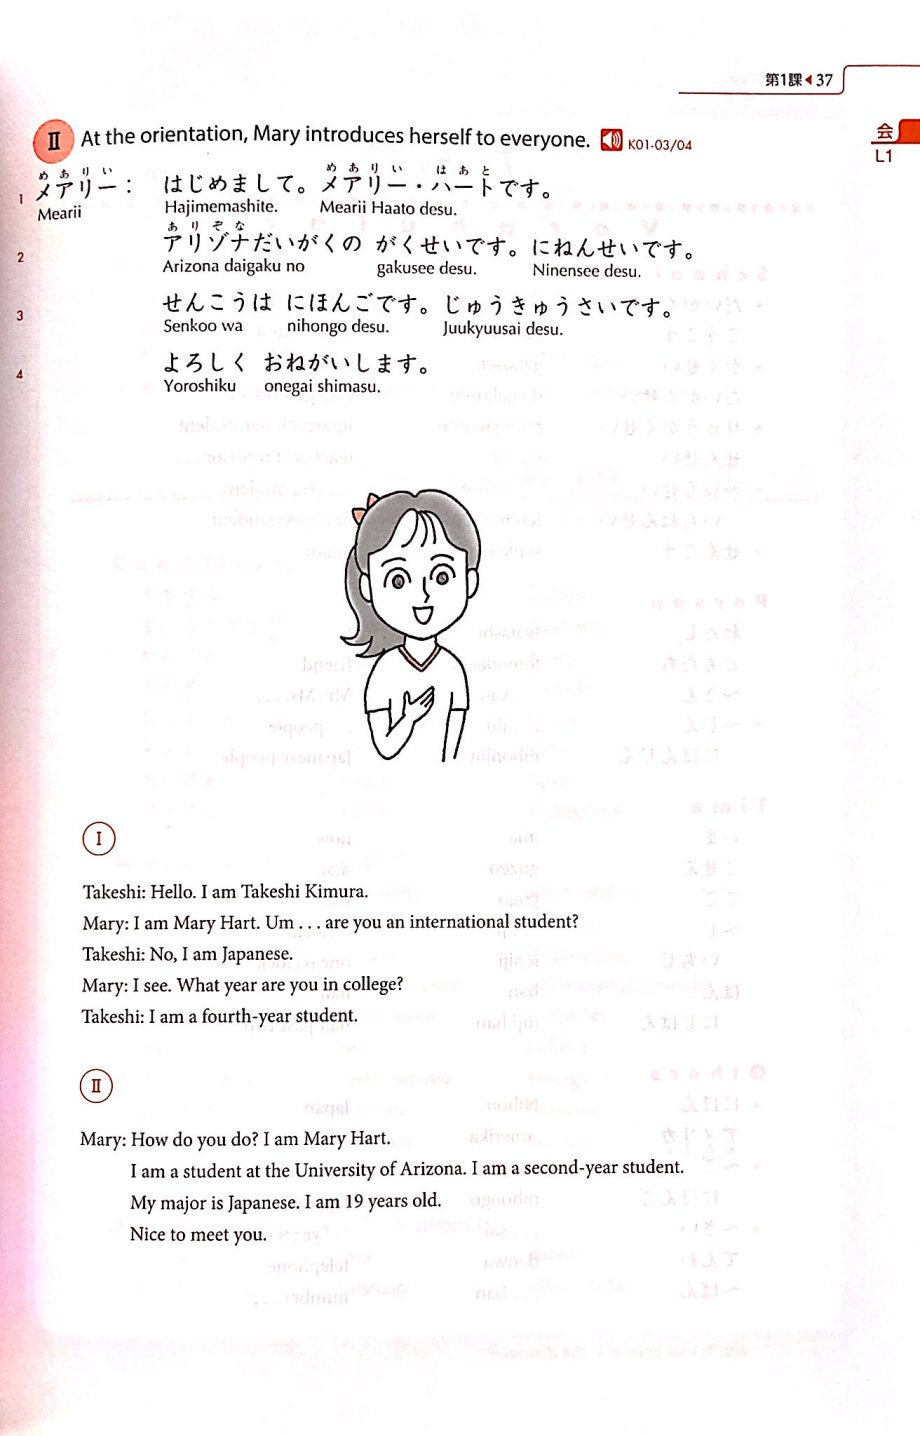 第1課◂37
会
L1
Ⅱ At the orientation, Mary introduces herself to everyone. K01-03/04
めありい めありい はあと
1 メアリー： はじめまして。メアリー・ハートです。
Mearii Hajimemashite. Mearii Haato desu.
ありぞな
2 アリゾナだいがくの がくせいです。にねんせいです。
Arizona daigaku no gakusee desu. Ninensee desu.
3 せんこうは にほんごです。じゅうきゅうさいです。
Senkoo wa nihongo desu. Juukyuusai desu.
4 よろしく おねがいします。
Yoroshiku onegai shimasu.
Ⅰ
Takeshi: Hello. I am Takeshi Kimura.
Mary: I am Mary Hart. Um . . . are you an international student?
Takeshi: No, I am Japanese.
Mary: I see. What year are you in college?
Takeshi: I am a fourth-year student.
Ⅱ
Mary: How do you do? I am Mary Hart.
I am a student at the University of Arizona. I am a second-year student.
My major is Japanese. I am 19 years old.
Nice to meet you.